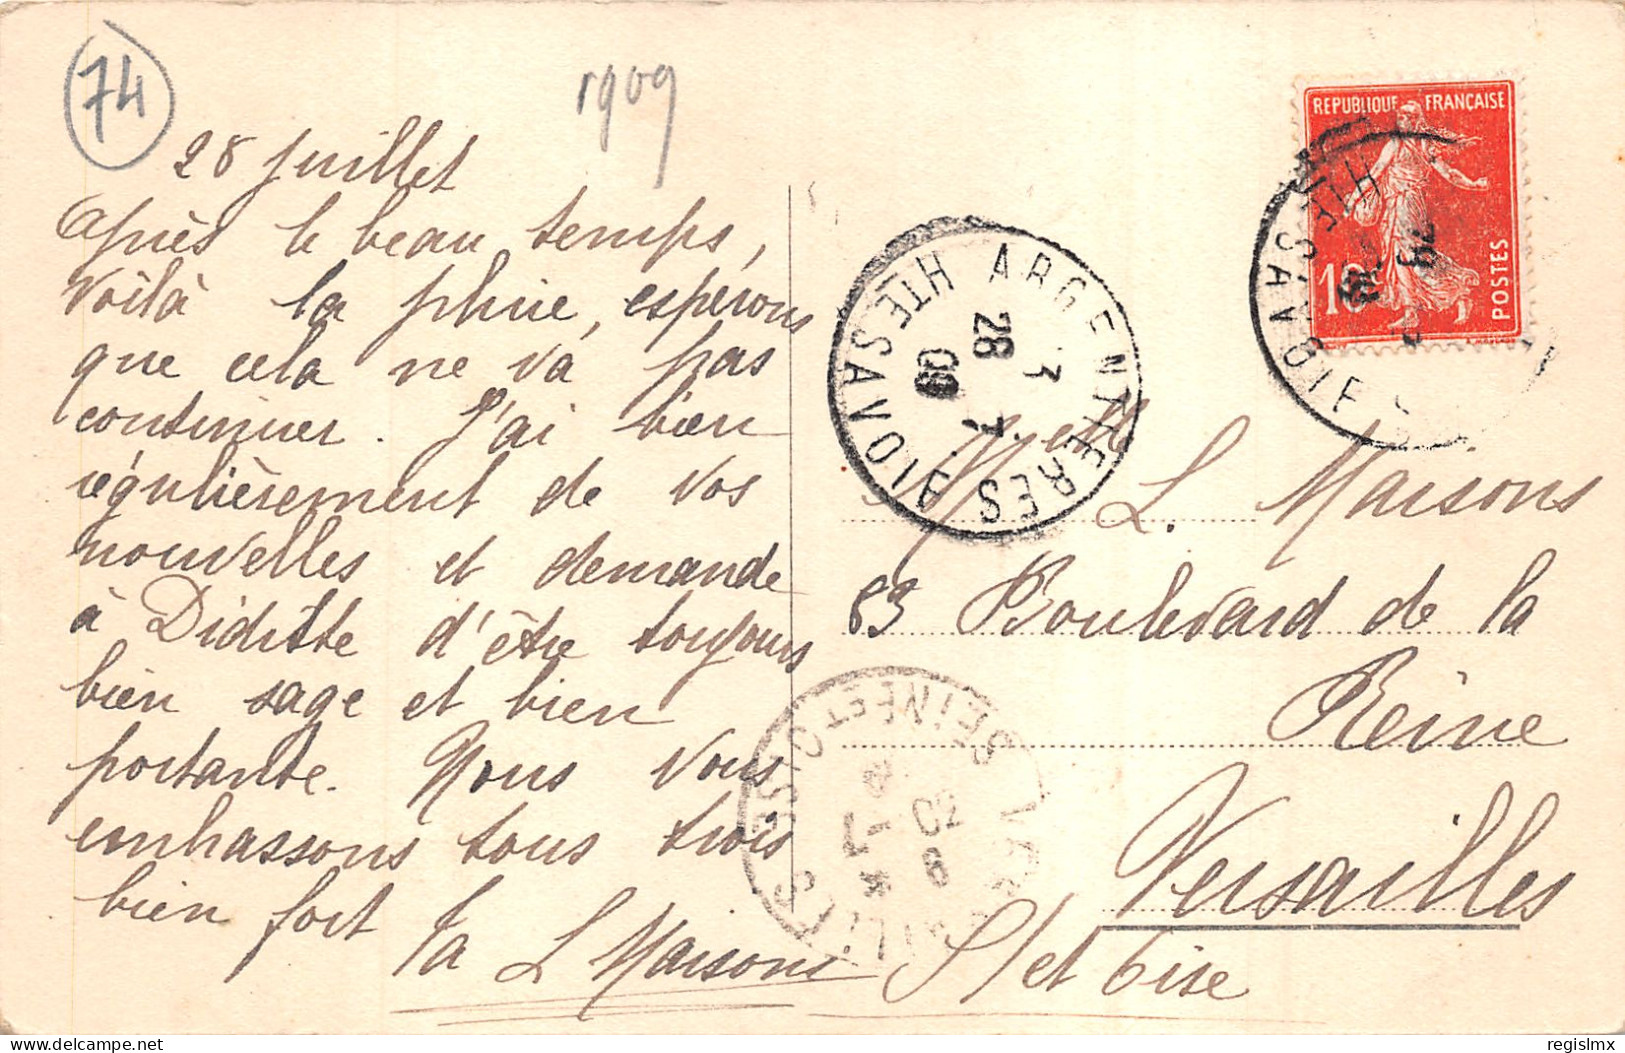 74
1909
28 juillet
Après le beau temps,
voilà la pluie, espérons
que cela ne va pas
continuer. J'ai bien
régulièrement de vos
nouvelles et demande
à Diditte d'être toujours
bien sage et bien
portante. Nous vous
embrassons tous trois
bien fort
L Maisons
REPUBLIQUE FRANÇAISE
POSTES
10
HTE SAVOIE
ARGENTIERES
3
28 7
09
HTE SAVOIE
Melle L. Maisons
83 Boulevard de la
Reine
Versailles
S/ et Oise
VERSAILLES
SEINE ET OISE
delcampe.net
regislmx